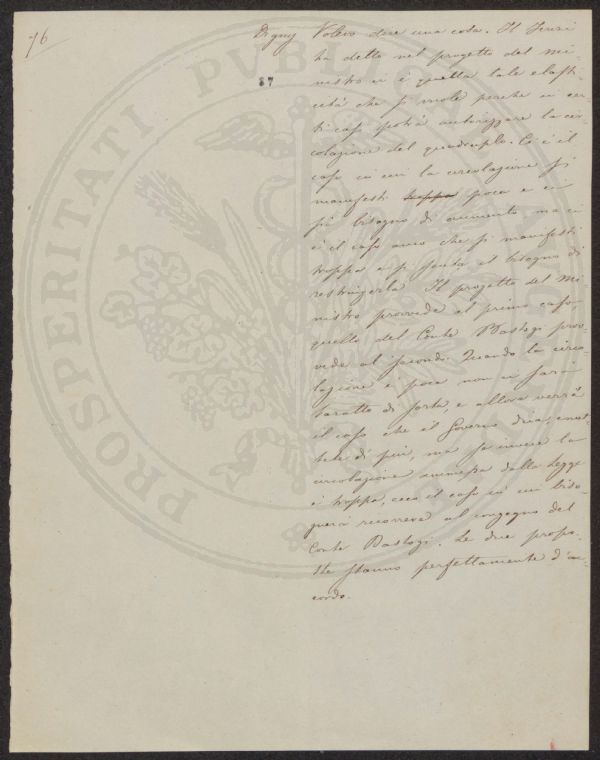 76
Digny Volevo dire una cosa. Il Ferri
87
ha detto nel progetto del mi-
nistro vi è quella tale elasti-
cità che si vuole perchè in cer-
ti casi potrà autorizzare la cir-
colazione del quadruplo. C'è il
caso in cui la circolazione si
manifesti troppo poca e vi
sia bisogno di aumento ma vi
è il caso anco che si manifesti
troppa e si senta il bisogno di
restringerla. Il progetto del mi-
nistro provvede al primo caso
quello del Conte Bastogi prov-
vede al secondo. Quando la circo-
lazione è poca non vi sarà
baratto di sorta, e allora verrà
il caso che il Governo dica, emet-
tete di più, ma se invece la
circolazione ammessa dalla legge
è troppa, ecco il caso in cui biso-
gnerà ricorrere al congegno del
Conte Bastogi. Le due propo-
ste stanno perfettamente d'ac-
cordo.
PROSPERITATI PVBLICAE